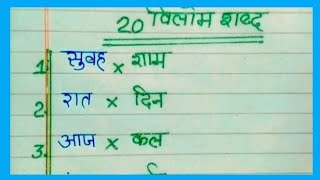 20 विलोम शब्द
1. सुबह × शाम
2. रात × दिन
3. आज × कल